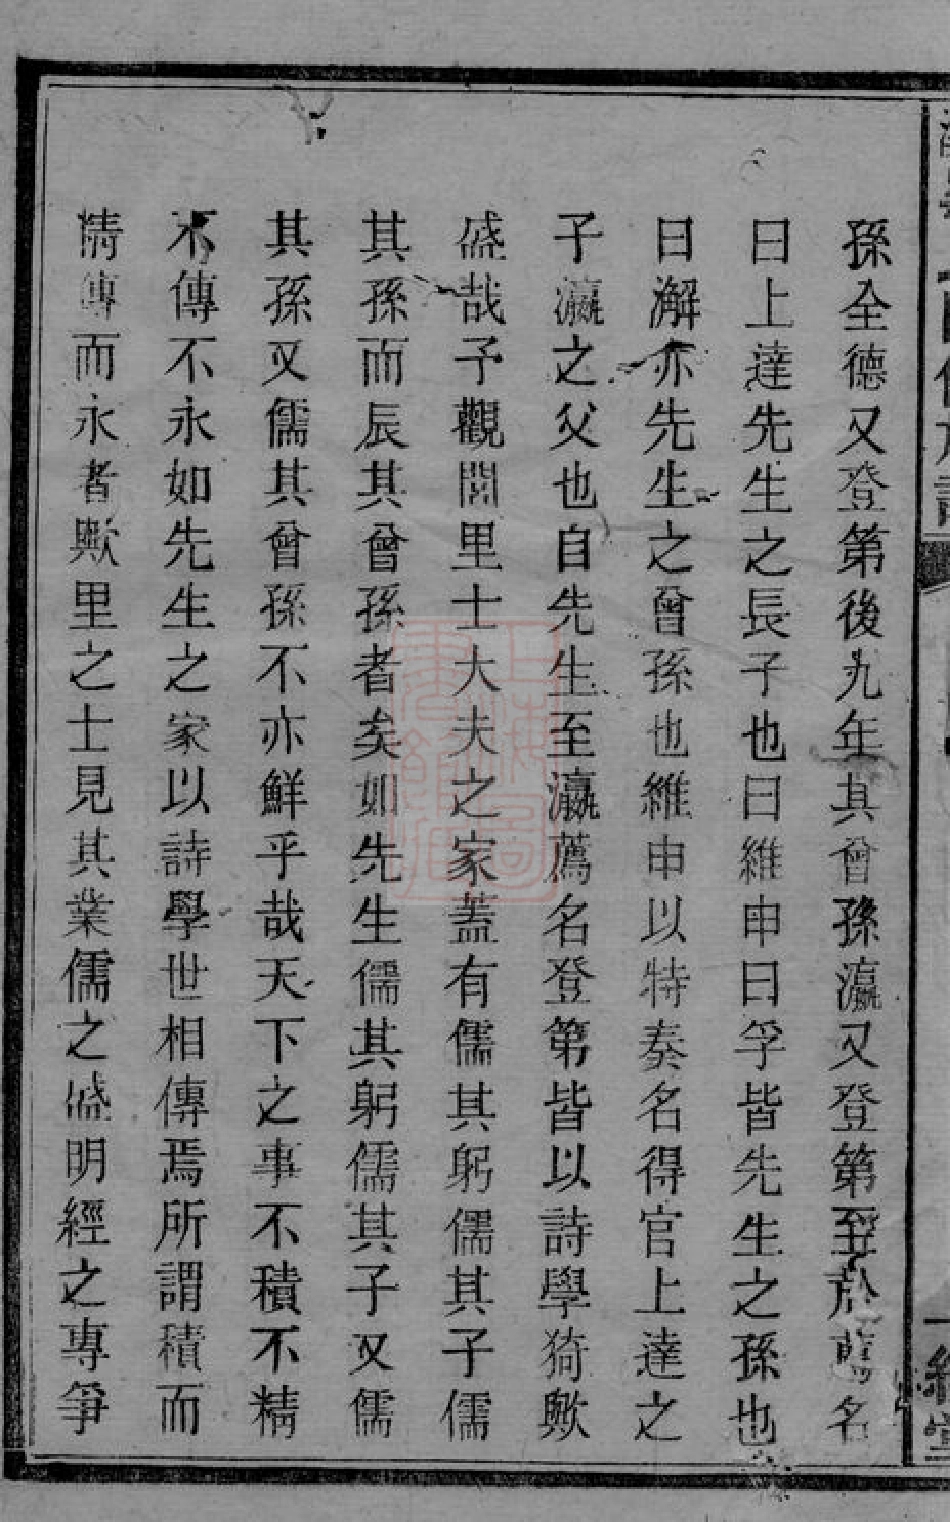 孫全德又登第後九年其曾孫瀛又登第至於薦名
曰上達先生之長子也曰維申曰孚皆先生之孫也
曰澥亦先生之曾孫也維申以特奏名得官上達之
子瀛之父也自先生至瀛薦名登第皆以詩學猗歟
盛哉予觀閭里士大夫之家蓋有儒其躬儒其子儒
其孫而辰其曾孫者矣如先生儒其躬儒其子又儒
其孫又儒其曾孫不亦鮮乎哉天下之事不積不精
不傳不永如先生之家以詩學世相傳焉所謂積而
精傳而永者歟里之士見其業儒之盛明經之專爭